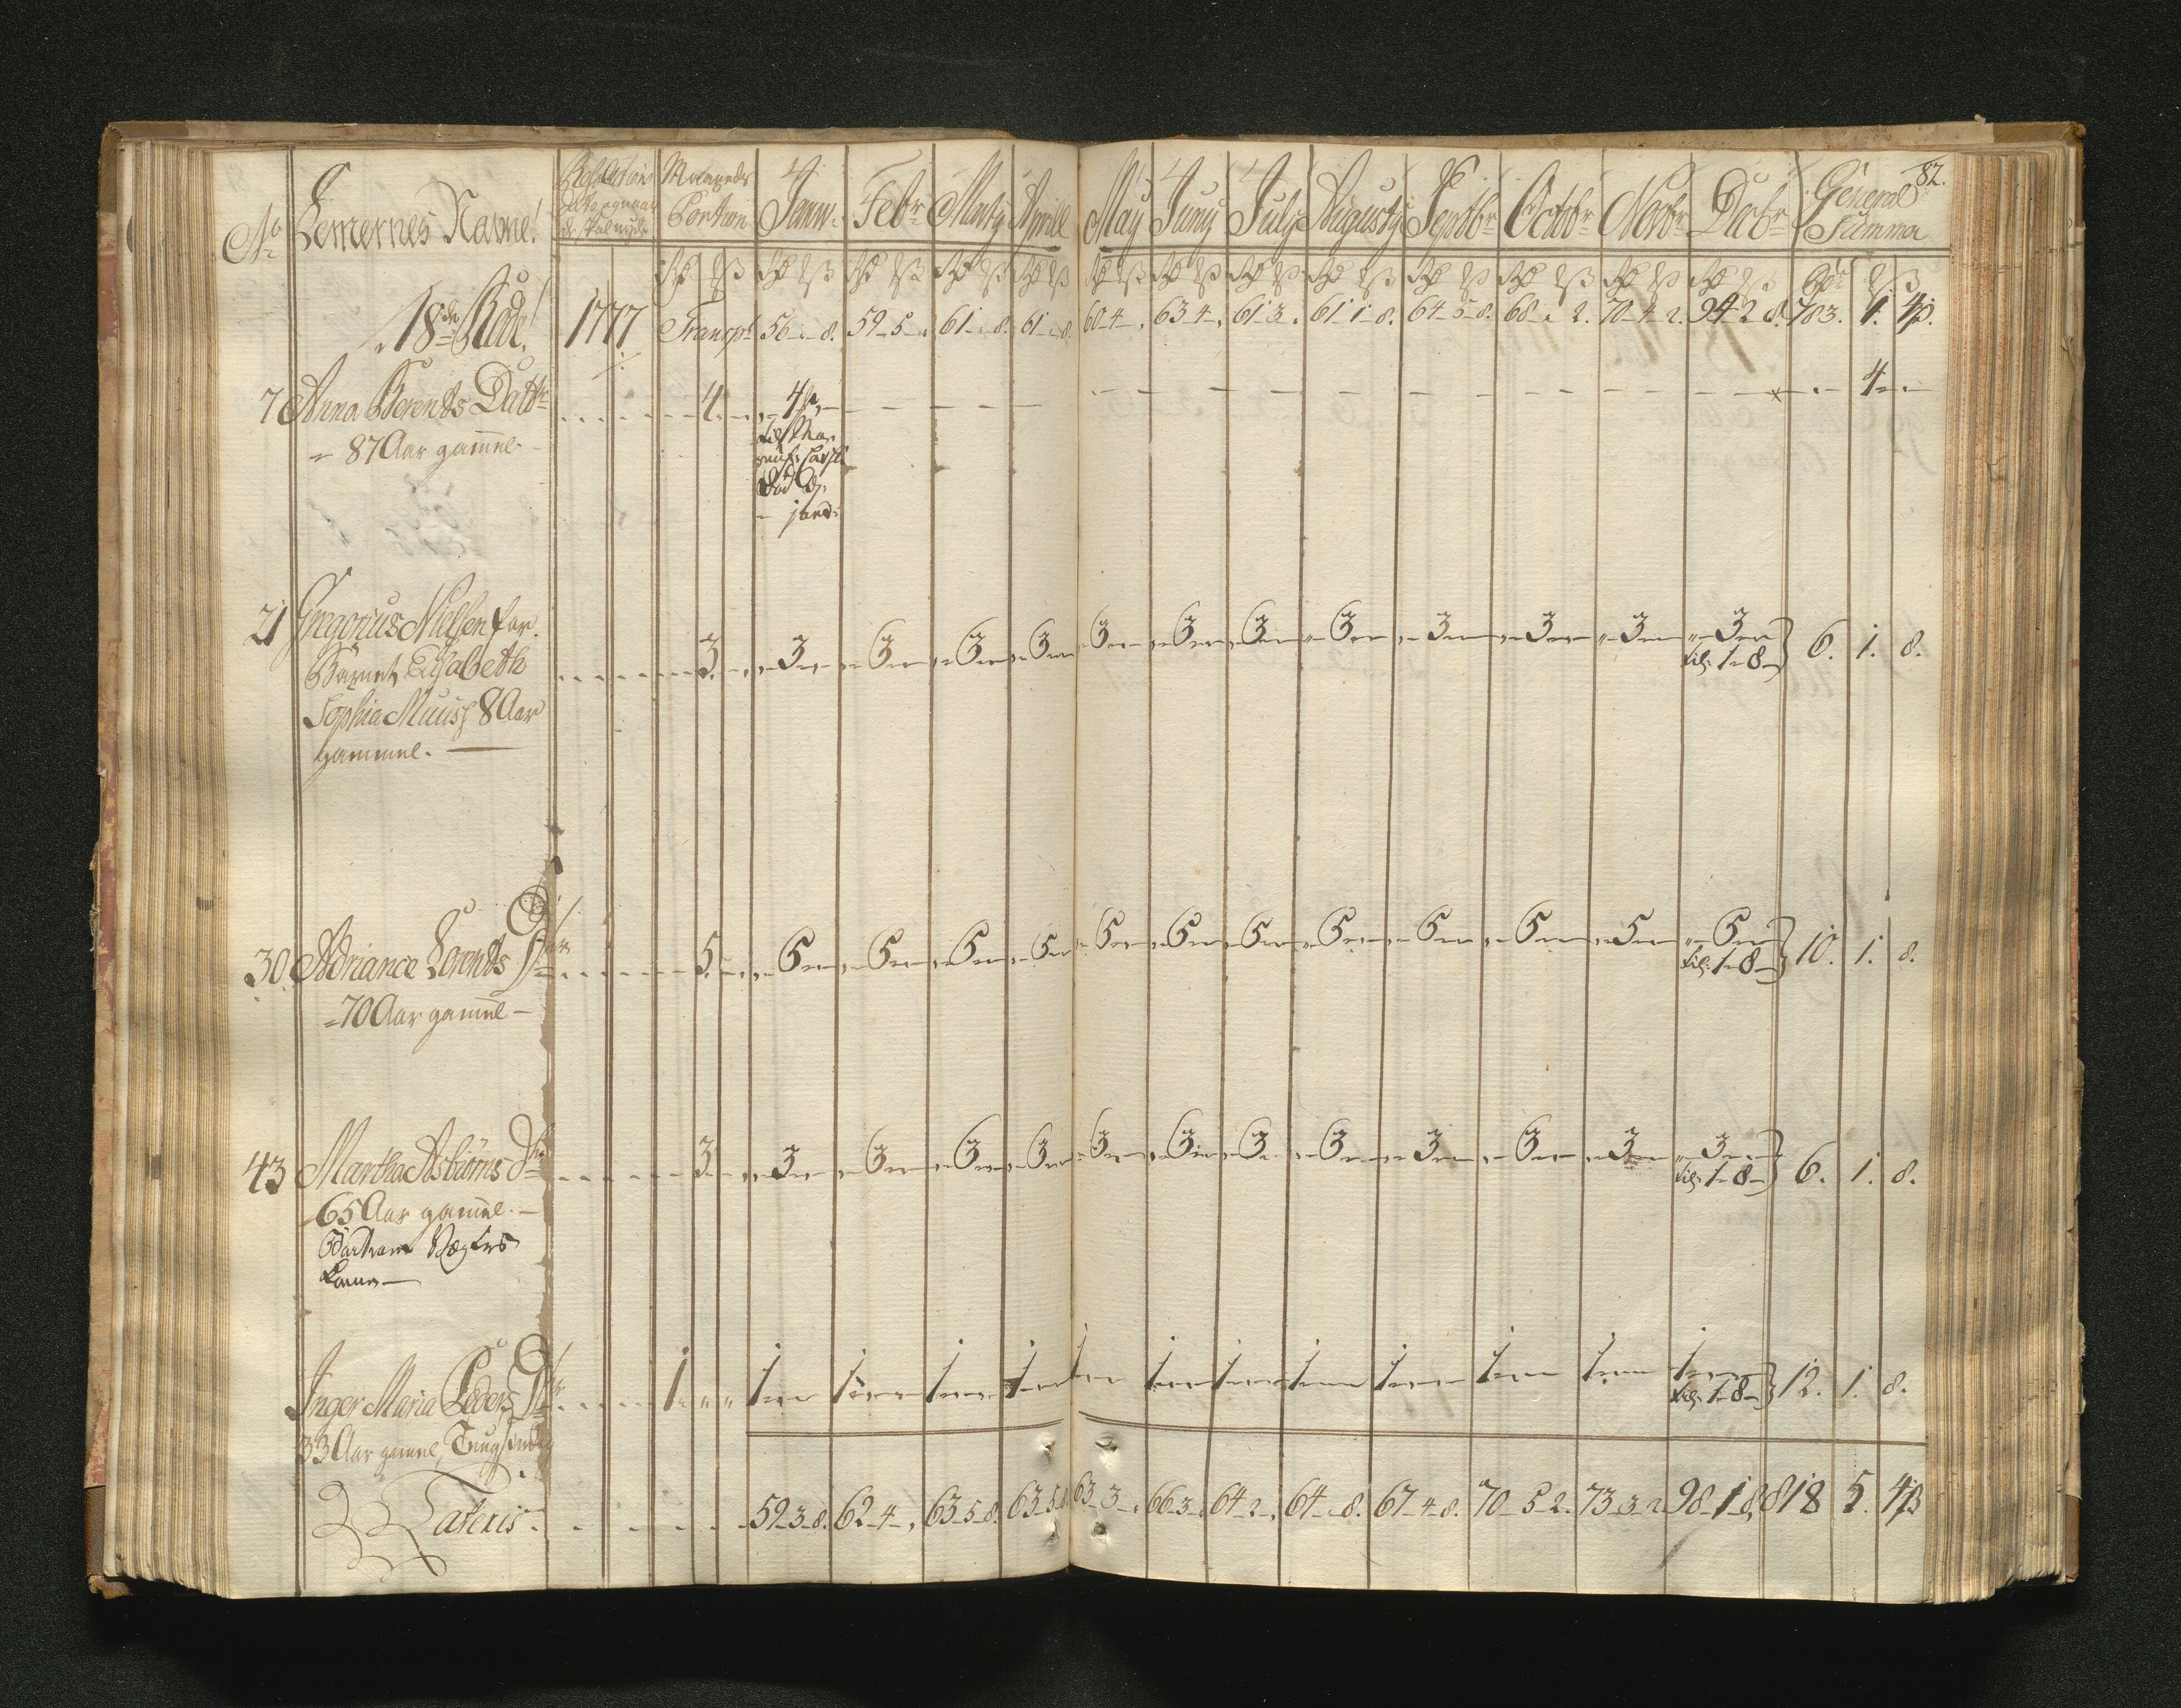 82.
No Lemernes Navne! Maaneds Portion Janu: Febr Marty Aprill May Juny July Augusty Septbr Octobr Novbr Decbr General Summa
18de Rode! 1777 Transpt 56 " 8. 59 5 " 61 " 8. 61 " 8. 60 4 " 63 4 " 61 3 " 61 1 8. 64 5 8. 68 " 2. 70 4 2. 94 2 8. 783. 1. 4ß.
7 Anna Berents Datt 4 4 4
87 Aar gamel
Død
21 Gregorius Nielsen for 3 3 3 3 3 3 3 3 3 3 3 3 3 6. 1. 8.
Barnet Elisabeth til 1 8
Sophia Muus 8 Aar
gammel.
30 Adriance Lorents Dtr 5 5 5 5 5 5 5 5 5 5 5 5 5 10. 1. 8.
70 Aar gamel til 1 8
43 Martha Asbiørns Dtr 3 3 3 3 3 3 3 3 3 3 3 3 3 6. 1. 8.
65 Aar gamel til 1 8
Kone
Inger Maria Peders Dtr 1 " " 1 1 1 1 1 1 1 1 1 1 1 1 12. 1. 8.
33 Aar gamel til 1 8
Lateris 59 3 8. 62 4 " 63 5 8. 63 5 8. 63 3 " 66 3 " 64 2 " 64 " 8. 67 4 8. 70 5 2. 73 3 2 98 1 8. 818 5. 4ß